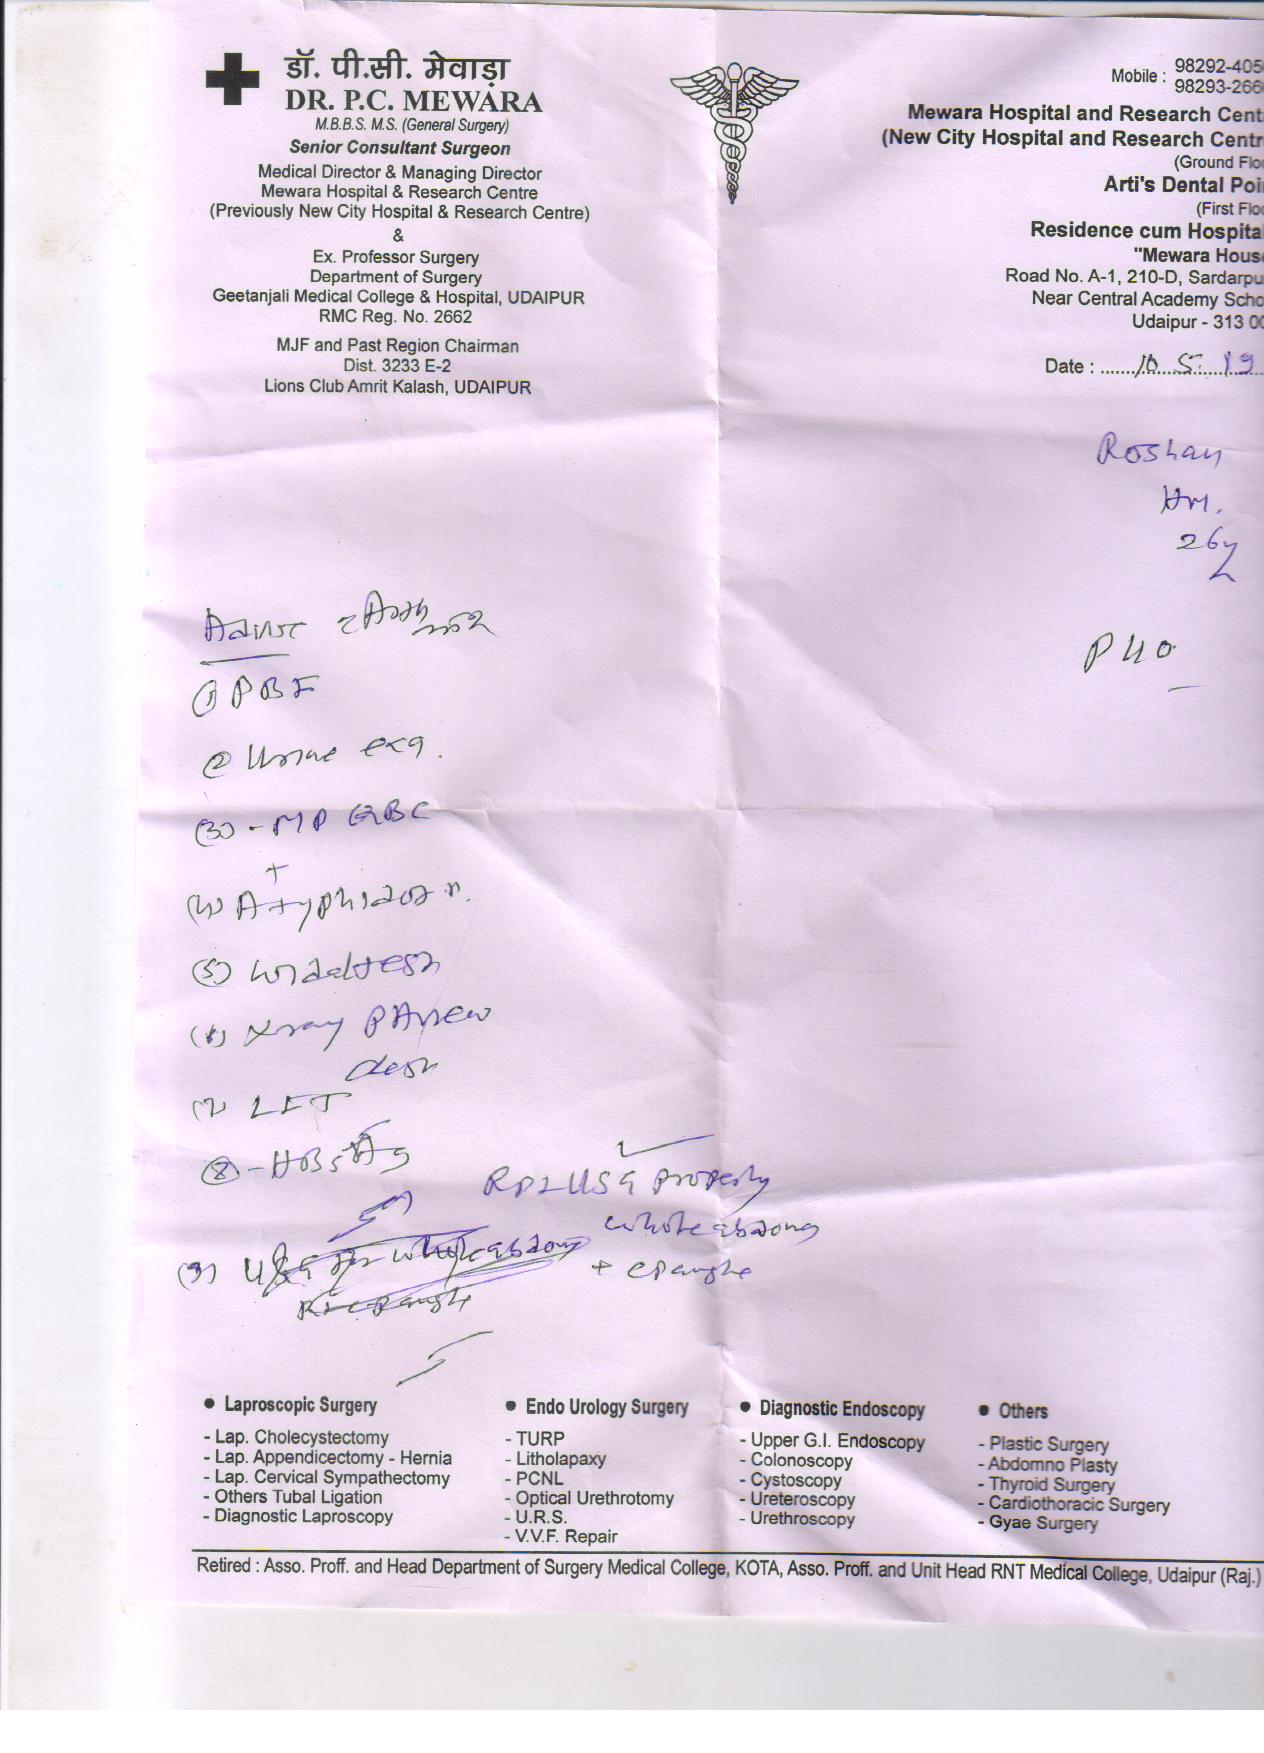 डॉ. पी.सी. मेवाड़ा
DR. P.C. MEWARA
M.B.B.S. M.S. (General Surgery)
Senior Consultant Surgeon
Medical Director & Managing Director
Mewara Hospital & Research Centre
(Previously New City Hospital & Research Centre)
&
Ex. Professor Surgery
Department of Surgery
Geetanjali Medical College & Hospital, UDAIPUR
RMC Reg. No. 2662
MJF and Past Region Chairman
Dist. 3233 E-2
Lions Club Amrit Kalash, UDAIPUR
Mobile : 98292-405
98293-266
Mewara Hospital and Research Cent
(New City Hospital and Research Centr
(Ground Flo
Arti's Dental Poi
(First Flo
Residence cum Hospita
"Mewara Hous
Road No. A-1, 210-D, Sardarpu
Near Central Academy Scho
Udaipur - 313 00
Date : 10.5.19
Roshan
26y
PUO
(1) PBF
(2) Urine
(3) - MP QBC
+
(4)
(5) Widal test
(6) Xray PA view
(7) LFT
(8) - HBsAg
USG
whole
+
(9) USG for whole
• Laproscopic Surgery
- Lap. Cholecystectomy
- Lap. Appendicectomy - Hernia
- Lap. Cervical Sympathectomy
- Others Tubal Ligation
- Diagnostic Laproscopy
• Endo Urology Surgery
- TURP
- Litholapaxy
- PCNL
- Optical Urethrotomy
- U.R.S.
- V.V.F. Repair
• Diagnostic Endoscopy
- Upper G.I. Endoscopy
- Colonoscopy
- Cystoscopy
- Ureteroscopy
- Urethroscopy
• Others
- Plastic Surgery
- Abdomno Plasty
- Thyroid Surgery
- Cardiothoracic Surgery
- Gyae Surgery
Retired : Asso. Proff. and Head Department of Surgery Medical College, KOTA, Asso. Proff. and Unit Head RNT Medical College, Udaipur (Raj.)